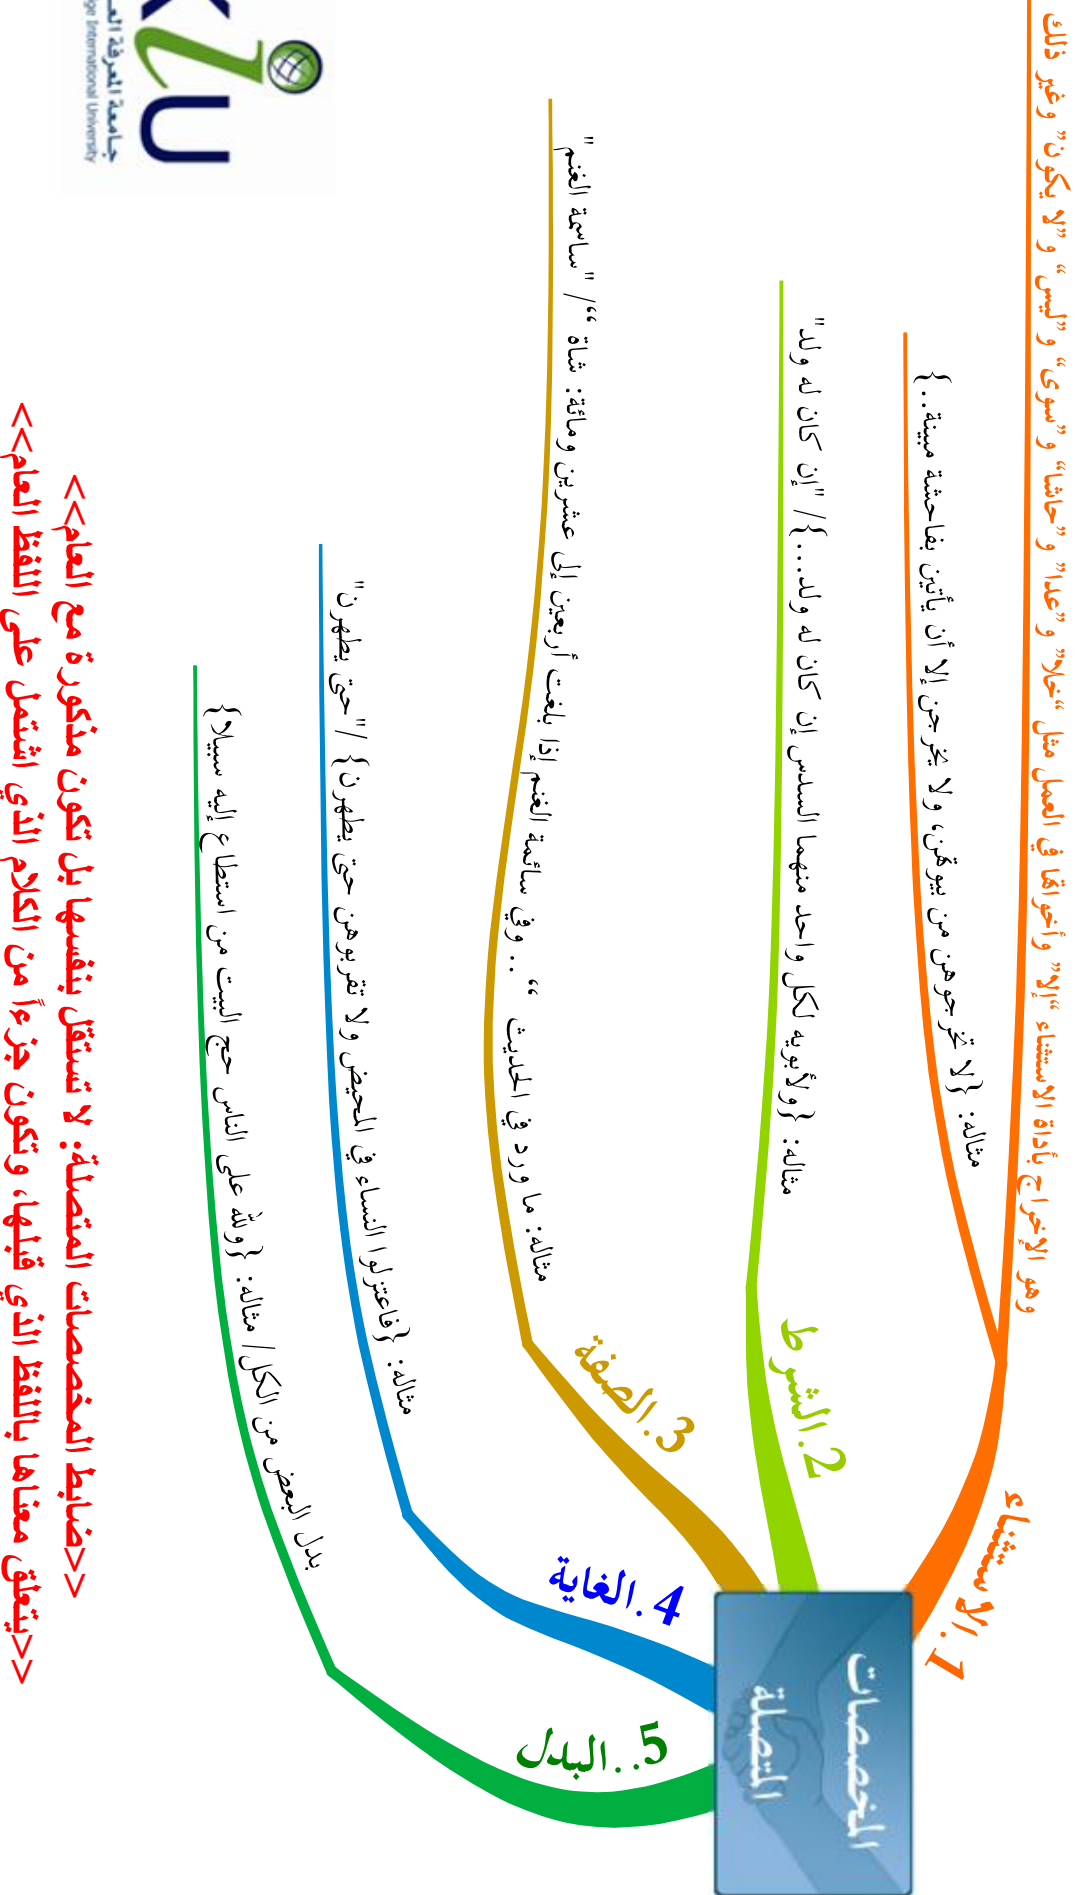 المخصصات
المتصلة
1.الاستثناء
وهو الإخراج بأداة الاستثناء “إلا” وأخواتها في العمل مثل “خلا” و”عدا” و”حاشا“ و”سوى“ و”ليس“ و”لا يكون” وغير ذلك
مثاله: {لا تخرجوهن من بيوتهن، ولا يخرجن إلا أن يأتين بفاحشة مبينة..}
2.الشرط
مثاله: {ولأبويه لكل واحد منهما السدس إن كان له ولد...}/ "إن كان له ولد"
3.الصفة
مثاله: ما ورد في الحديث “ .. وفي سائمة الغنم إذا بلغت أربعين إلى عشرين ومائة: شاة “/ "سائمة الغنم"
4.الغاية
مثاله: {فاعتزلوا النساء في المحيض ولا تقربوهن حتى يطهرن} /"حتى يطهرن"
5..البدل
بدل البعض من الكل/ مثاله: {ولله على الناس حج البيت من استطاع إليه سبيلا}
<<ضابط المخصصات المتصلة: لا تستقل بنفسها بل تكون مذكورة مع العام>>
<<يتعلق معناها باللفظ الذي قبلها، وتكون جزءاً من الكلام الذي اشتمل على اللفظ العام>>
iU
جامعة المعرفة
International University